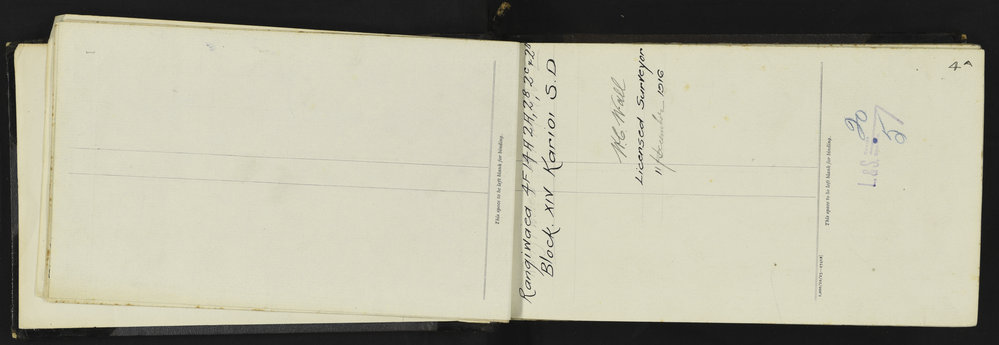 Rangiwaea 4F 14A 2A, 2B, 2C & 2D
Block. XIV Karioi S.D
W.C. Wall
Licensed Surveyor
11 December 1916
This space to be left blank for binding.
This space to be left blank for binding.
4A
L. & S.
20
57